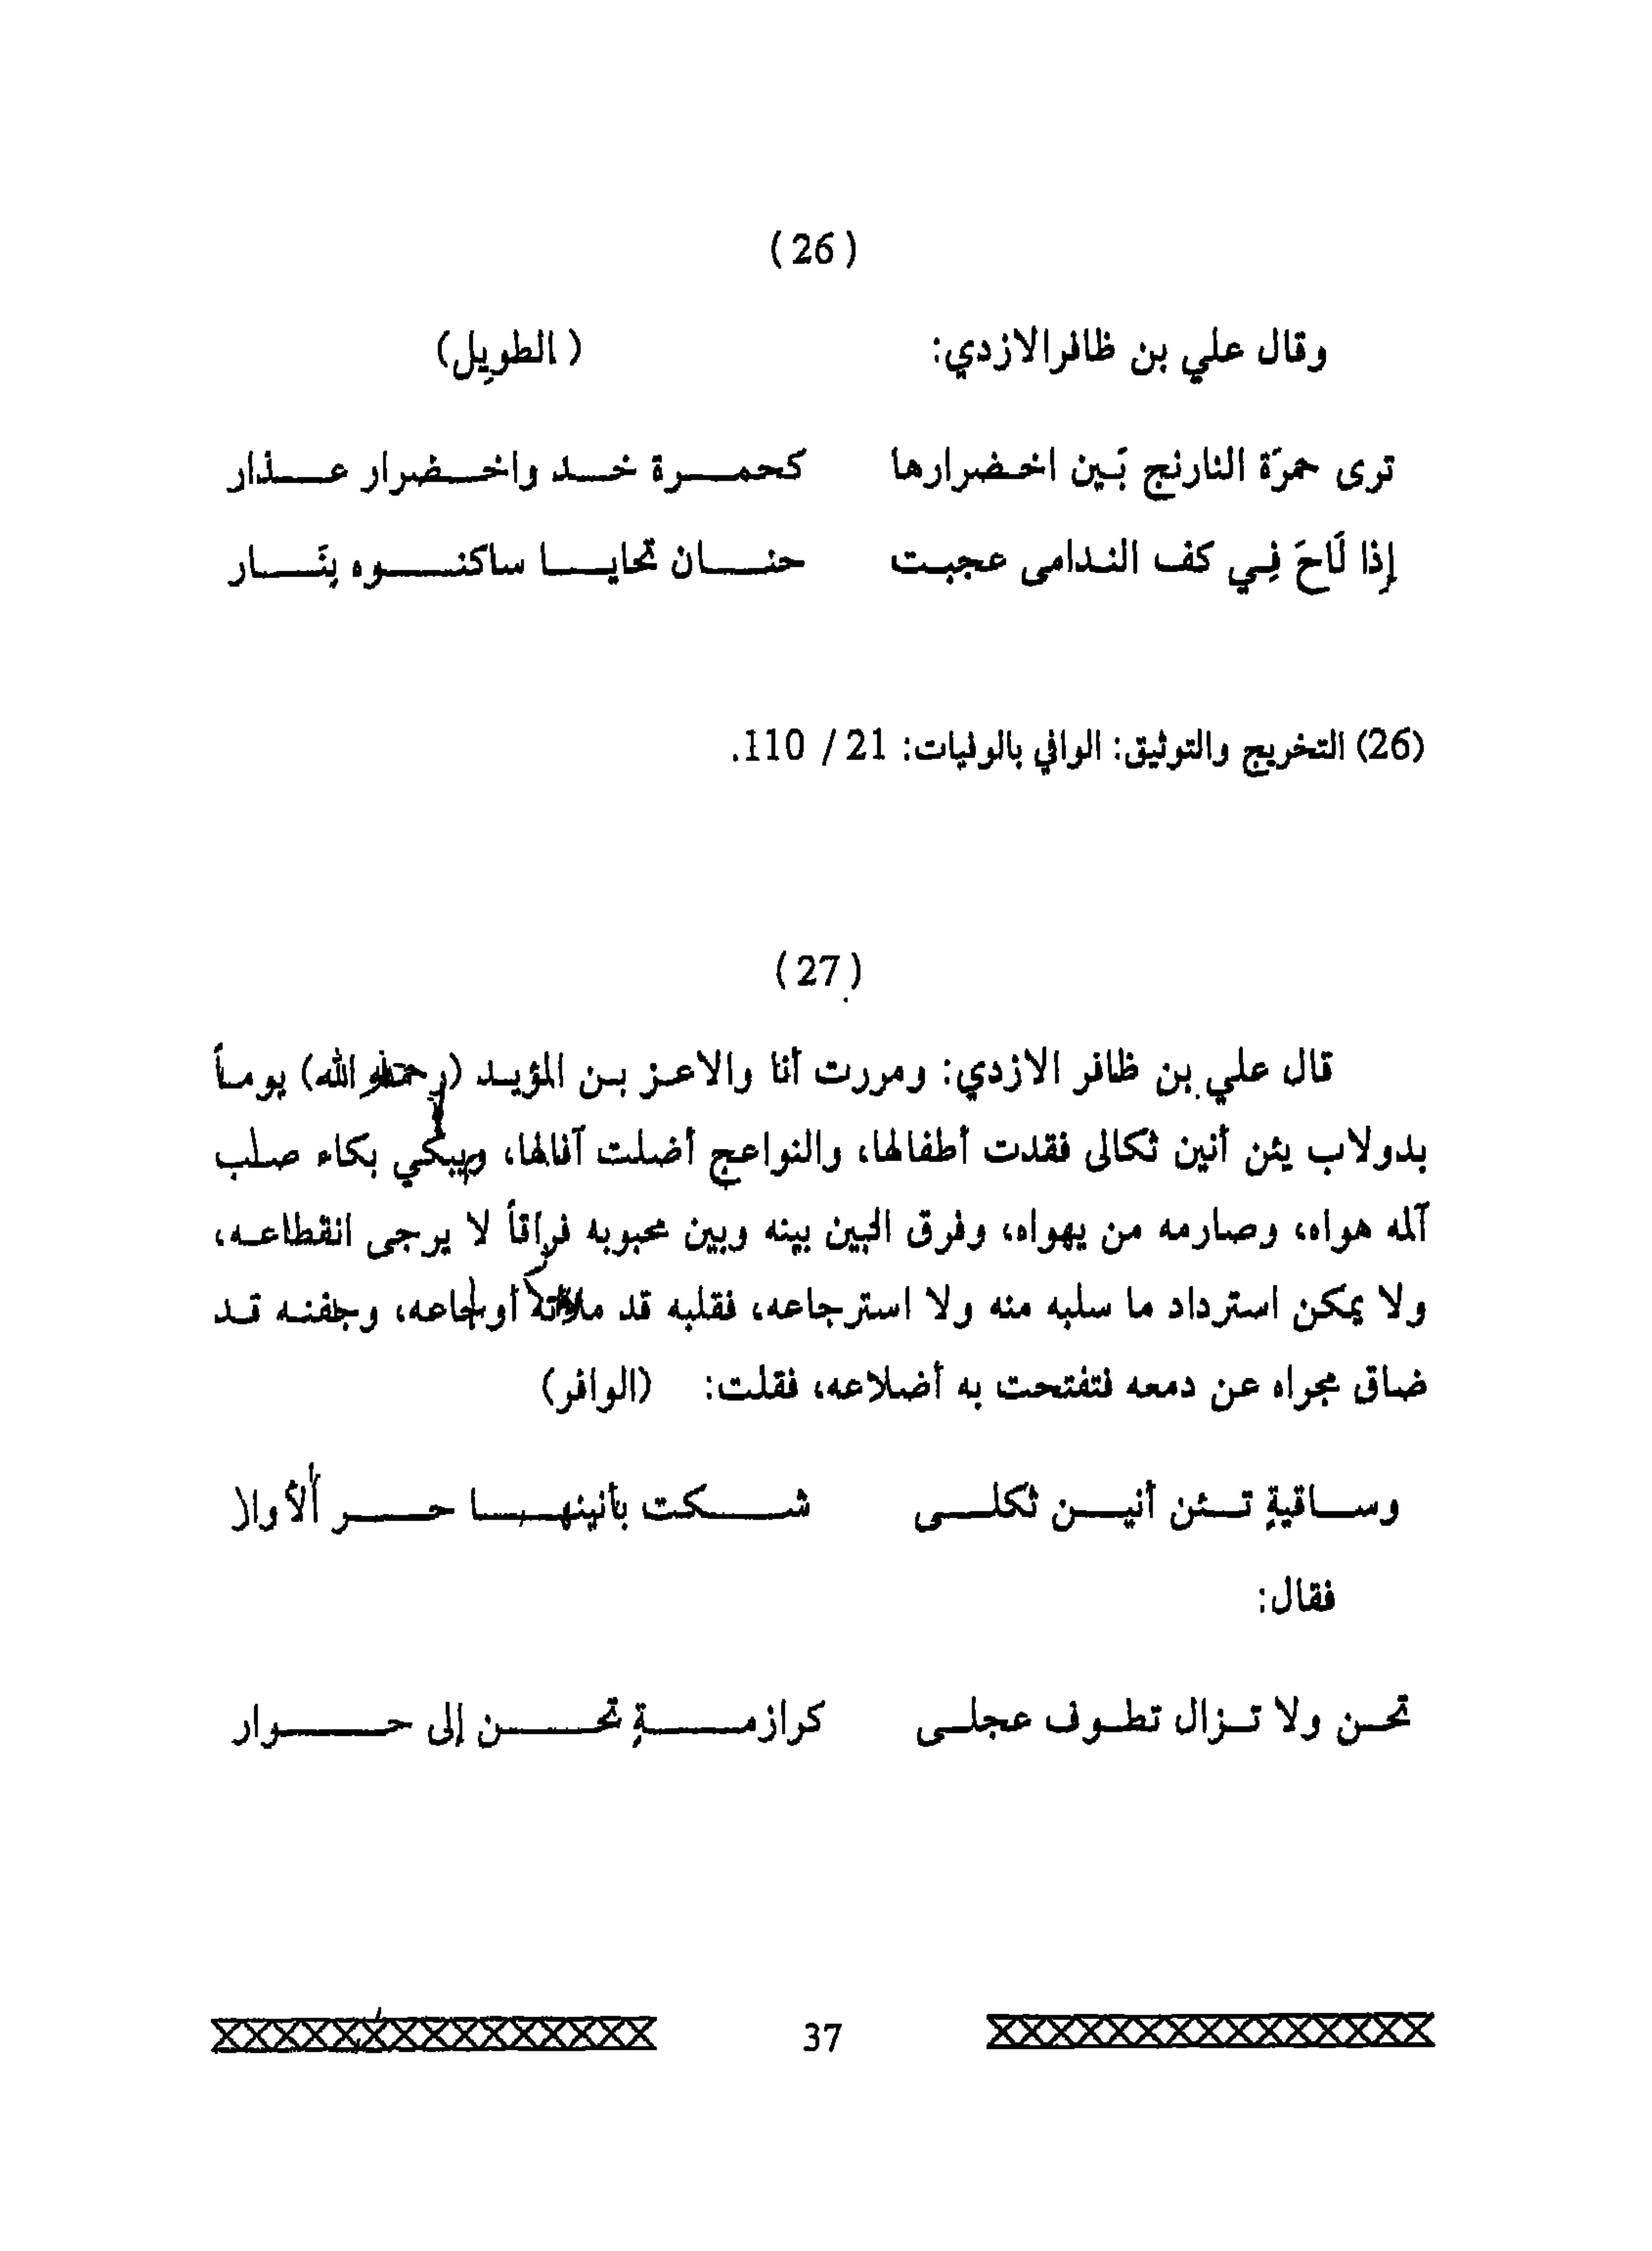 (26)
وقال علي بن ظافرالازدي: (الطويل)
ترى حمرّة النارنج بَين اخضرارها كحمرة خد واخضرار عذار
إِذا لَاحَ فِي كف الندامى عجبت حنان تحايا ساكنوه بنَار
(26) التخريج والتوثيق: الوافي بالوفيات: 21 / 110.
(27)
قال علي بن ظافر الازدي: ومررت أنا والاعز بن المؤيد (رحمه الله) يوماً
بدولاب يئن أنين ثكالى فقدت أطفالها، والنواعج أضلت آفالها، ويبكي بكاء صلب
آلمه هواه، وصارمه من يهواه، وفرق البين بينه وبين محبوبه فراقاً لا يرجى انقطاعه،
ولا يمكن استرداد ما سلبه منه ولا استرجاعه، فقلبه قد أوجاعه، وجفنه قد
ضاق مجراه عن دمعه فتفتحت به أضلاعه، فقلت: (الوافر)
وساقيةٍ تئن أنين ثكلى شكت بأنينها حر
فقال:
تحن ولا تزال تطوف عجلى كرازمةٍ تحن إلى حوار
37